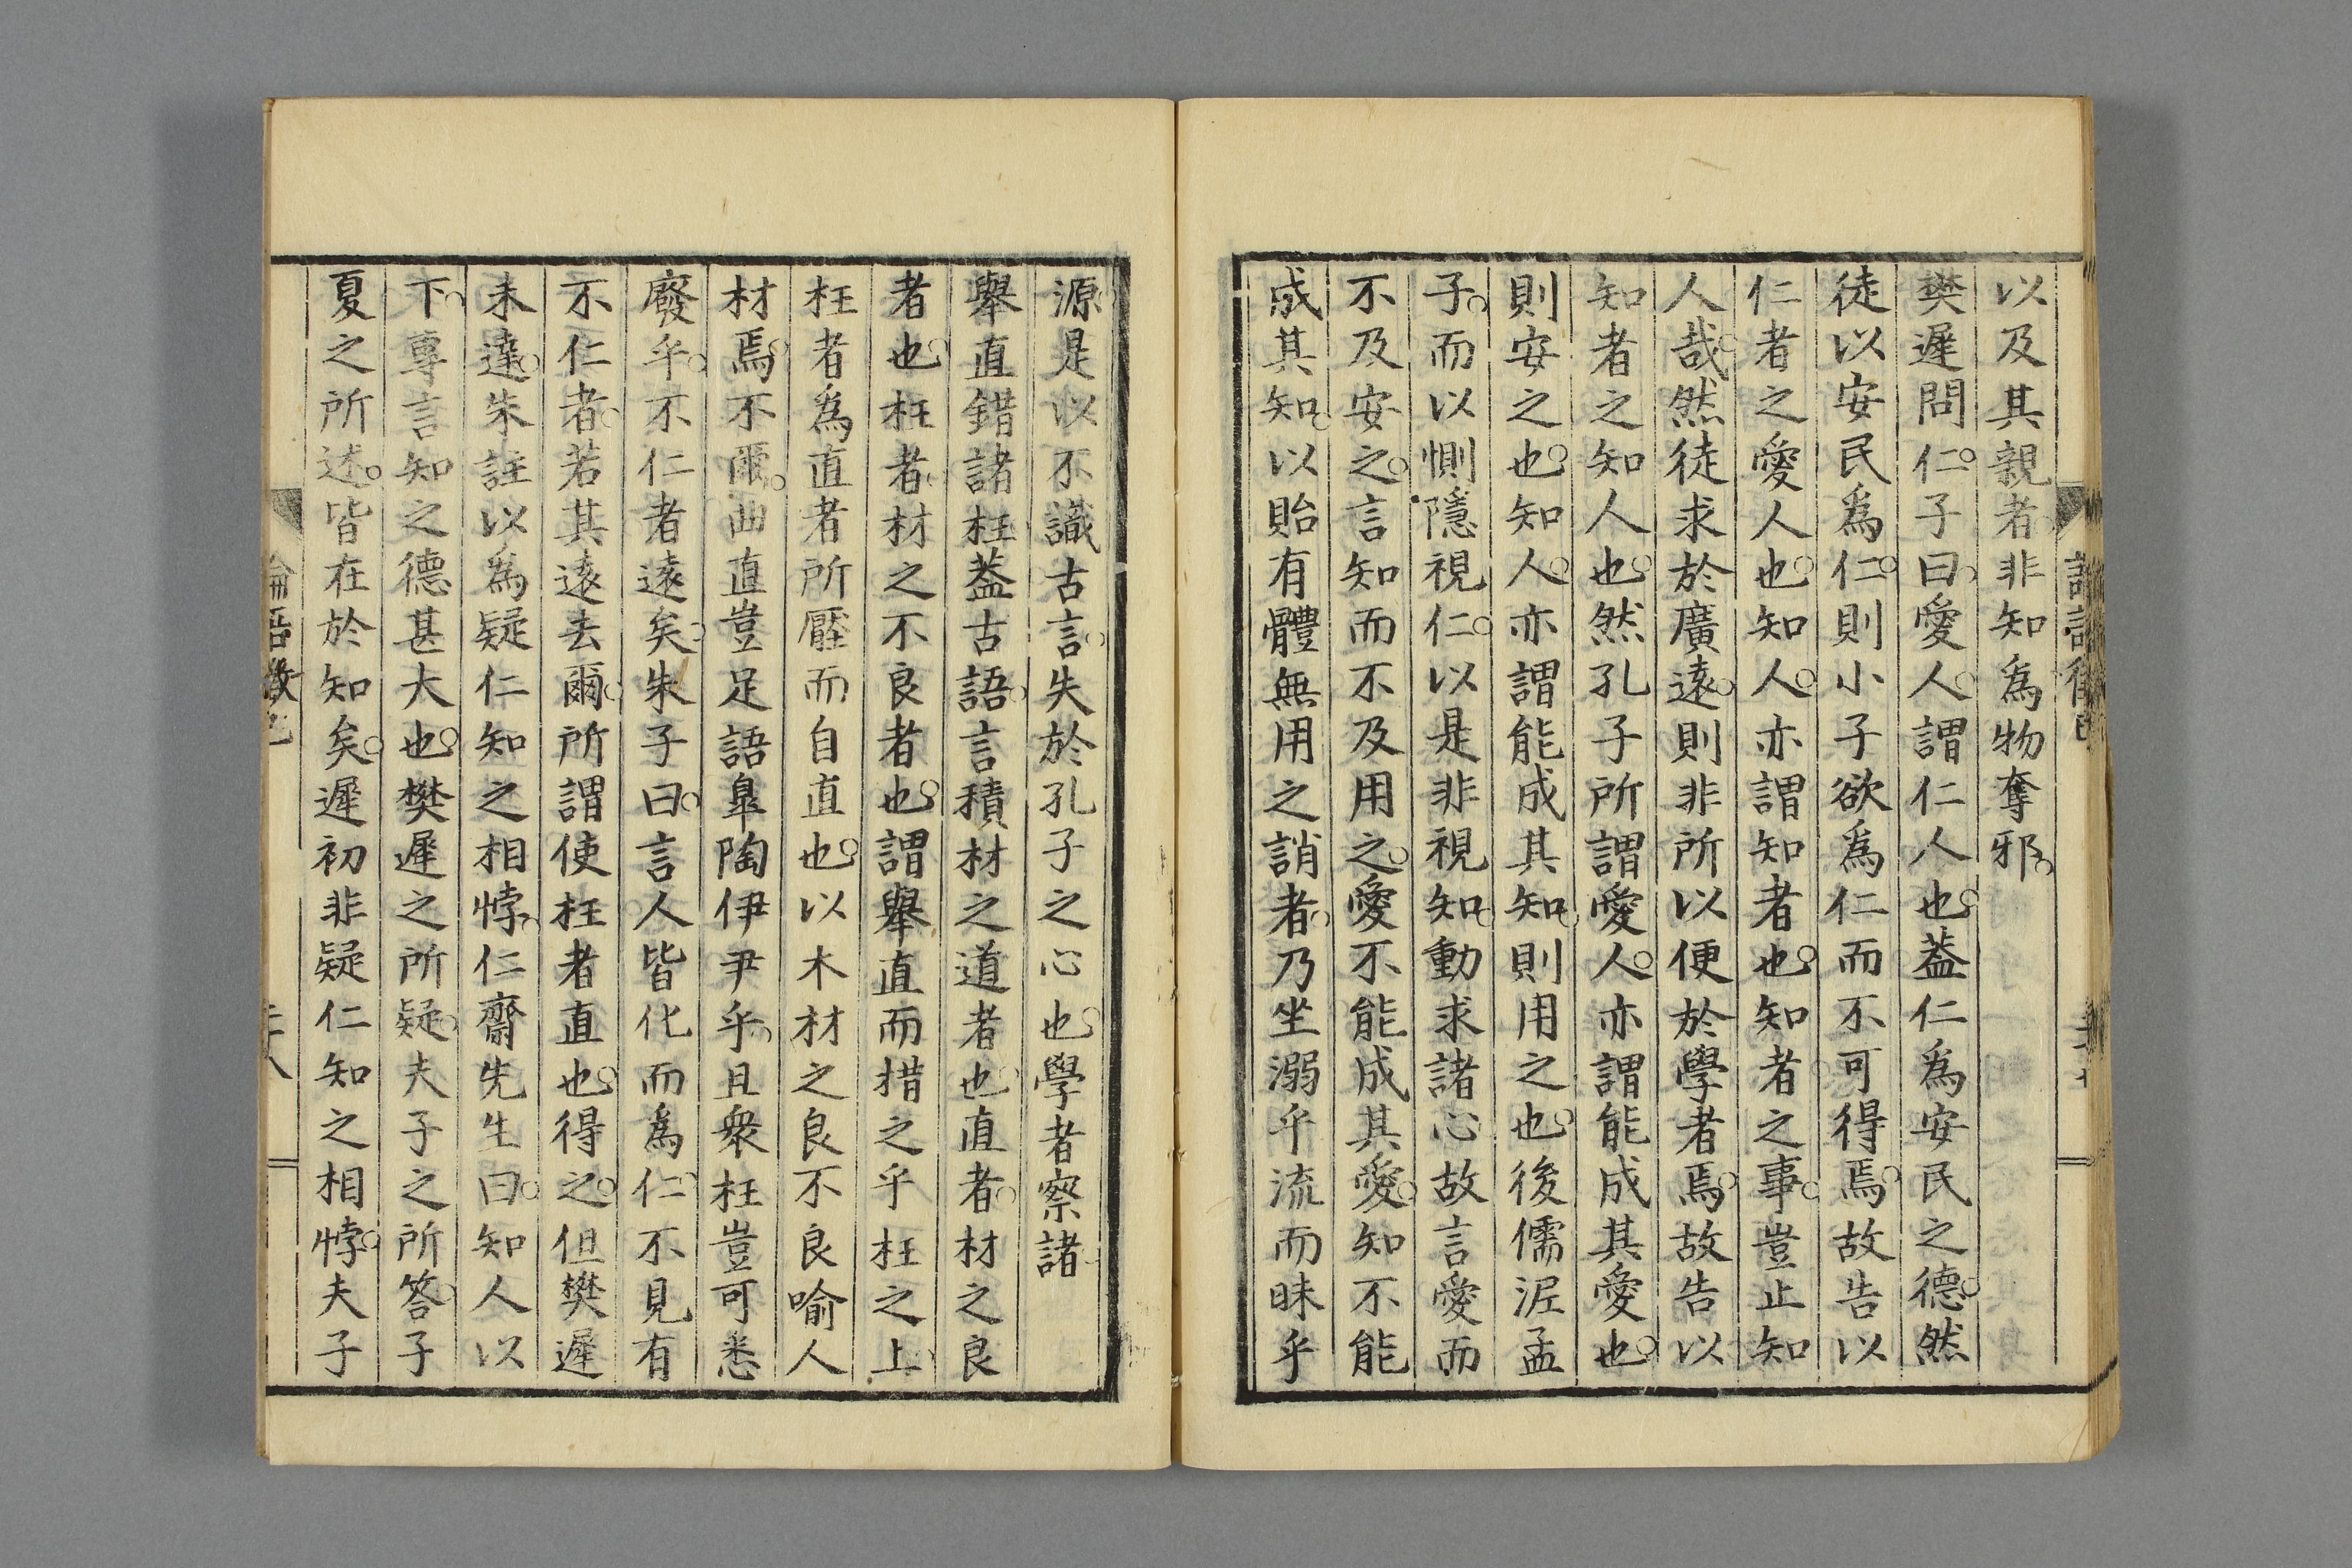 以及其親者非知爲物奪邪
樊遲問仁子曰愛人謂仁人也蓋仁爲安民之德然
徒以安民爲仁則小子欲爲仁而不可得焉故告以
仁者之愛人也知人亦謂知者也知者之事豈止知
人哉然徒求於廣遠則非所以便於學者焉故告以
知者之知人也然孔子所謂愛人亦謂能成其愛也
則安之也知人亦謂能成其知則用之也後儒泥孟
子而以惻隱視仁以是非視知動求諸心故言愛而
不及安之言知而不及用之愛不能成其愛知不能
成其知以貽有體無用之誚者乃坐溺乎流而昧乎
源是以不識古言失於孔子之心也學者察諸
舉直錯諸枉蓋古語言積材之道者也直者材之良
者也枉者材之不良者也謂舉直而措之乎枉之上
枉者爲直者所壓而自直也以木材之良不良喻人
材焉不爾曲直豈足語皐陶伊尹乎且衆枉豈可悉
廢乎不仁者遠矣朱子曰言人皆化而爲仁不見有
不仁者若其遠去爾所謂使枉者直也得之但樊遲
未達朱註以爲疑仁知之相悖仁齋先生曰知人以
下專言知之德甚大也樊遲之所疑夫子之所答子
夏之所述皆在於知矣遲初非疑仁知之相悖夫子
論語徵己